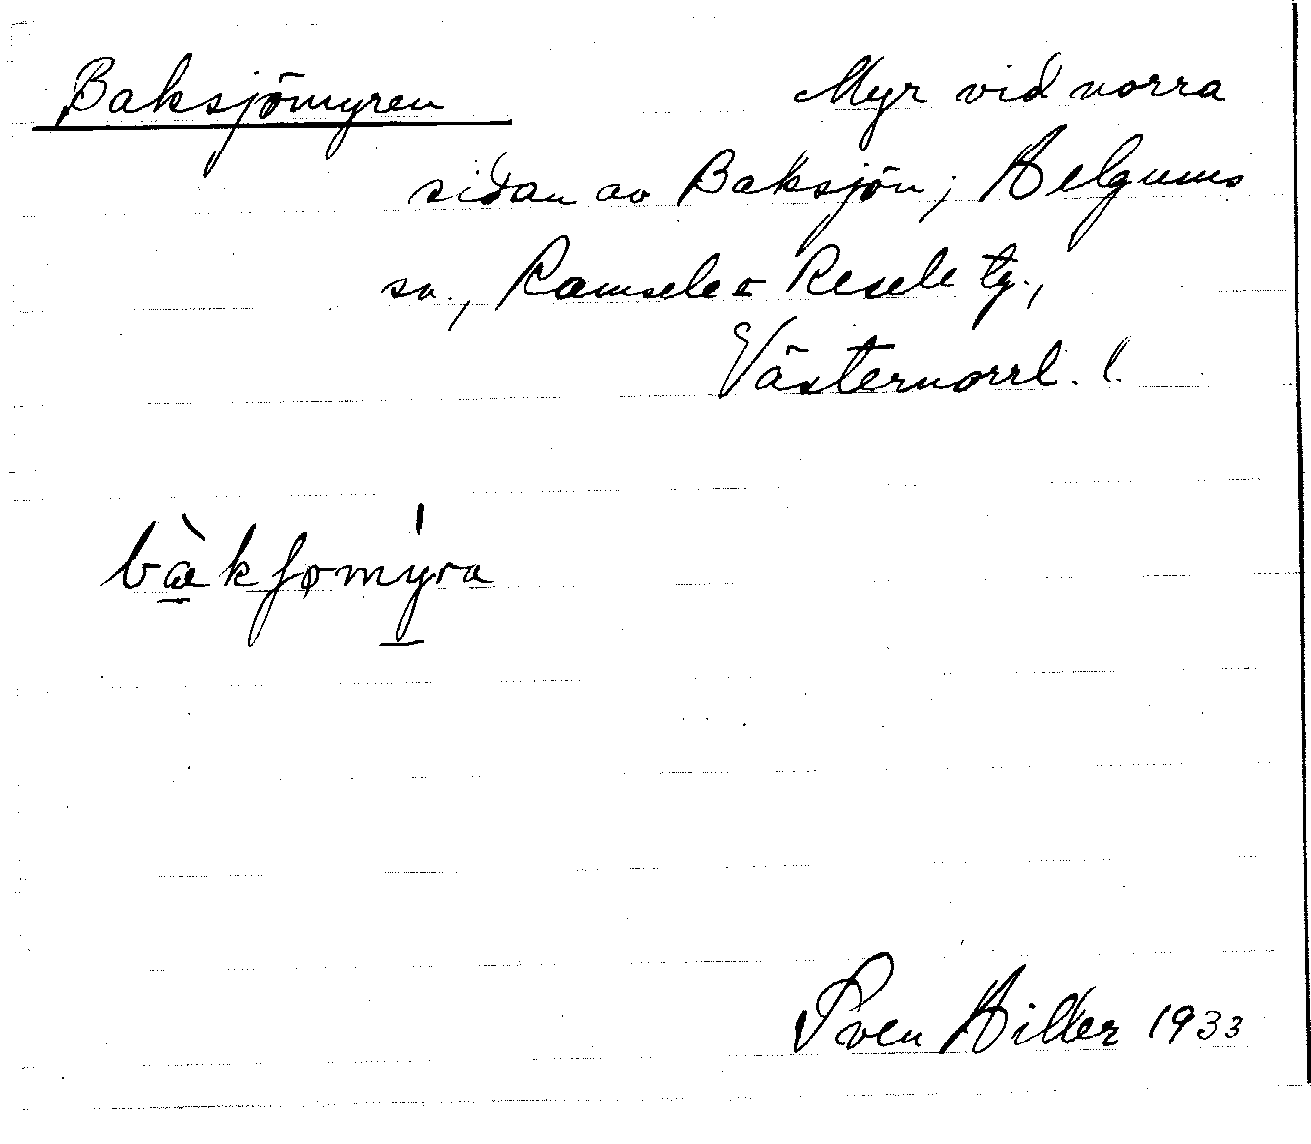 Baksjömyren Myr vid norra
sidan av Baksjön; Helgums
sn., Ramsele o Resele tg.,
Västernorrl. l.
bàkʃømýra
Sven Hiller 1933